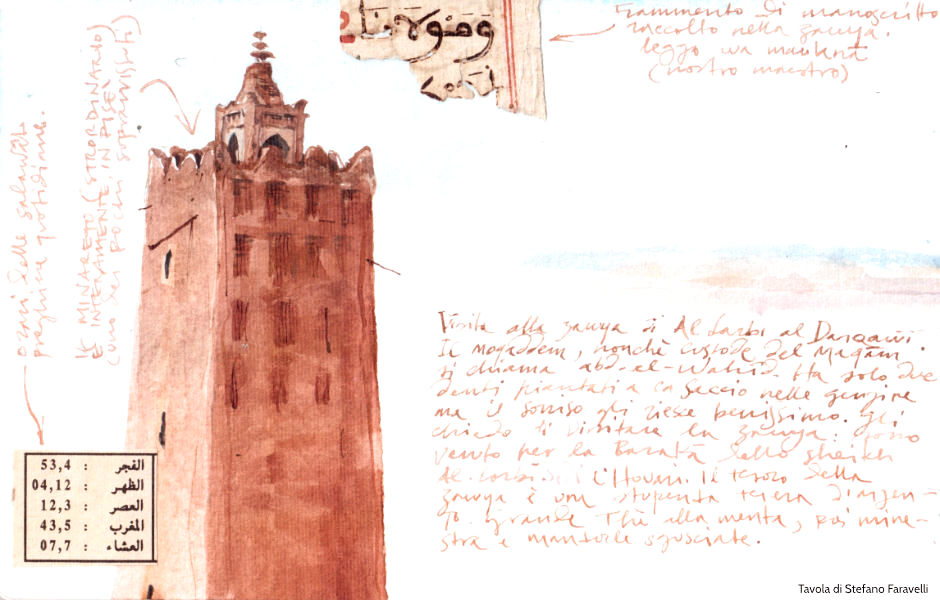 ومولانا
Frammento di manoscritto
raccolto nella zawya.
leggo wa maulanā
(nostro maestro)
orari delle salawât
preghiere quotidiane.
IL MINARETO (STRORDINARIO)
È INTERAMENTE IN PISÉ
(uno dei pochi sopravvissuti)
الفجر : 53,4
الظهر : 04,12
العصر : 12,3
المغرب : 43,5
العشاء : 07,7
Visita alla zawya di Al Larbi al Darqawi.
Il Moqaddem, nonché custode del Maqām
si chiama abd-el-Wahid. Ha solo due
denti piantati a casaccio nelle gengive
ma il sorriso gli riesce benissimo. Gli
chiedo di visitare la zawya: sono
venuto per la Baraka dello sheikh
Al. Il tesoro della
zawya è una stupenta teiera d'argen-
to. Grande Thè alla menta, poi mine-
stra e mandorle sgusciate.
Tavola di Stefano Faravelli